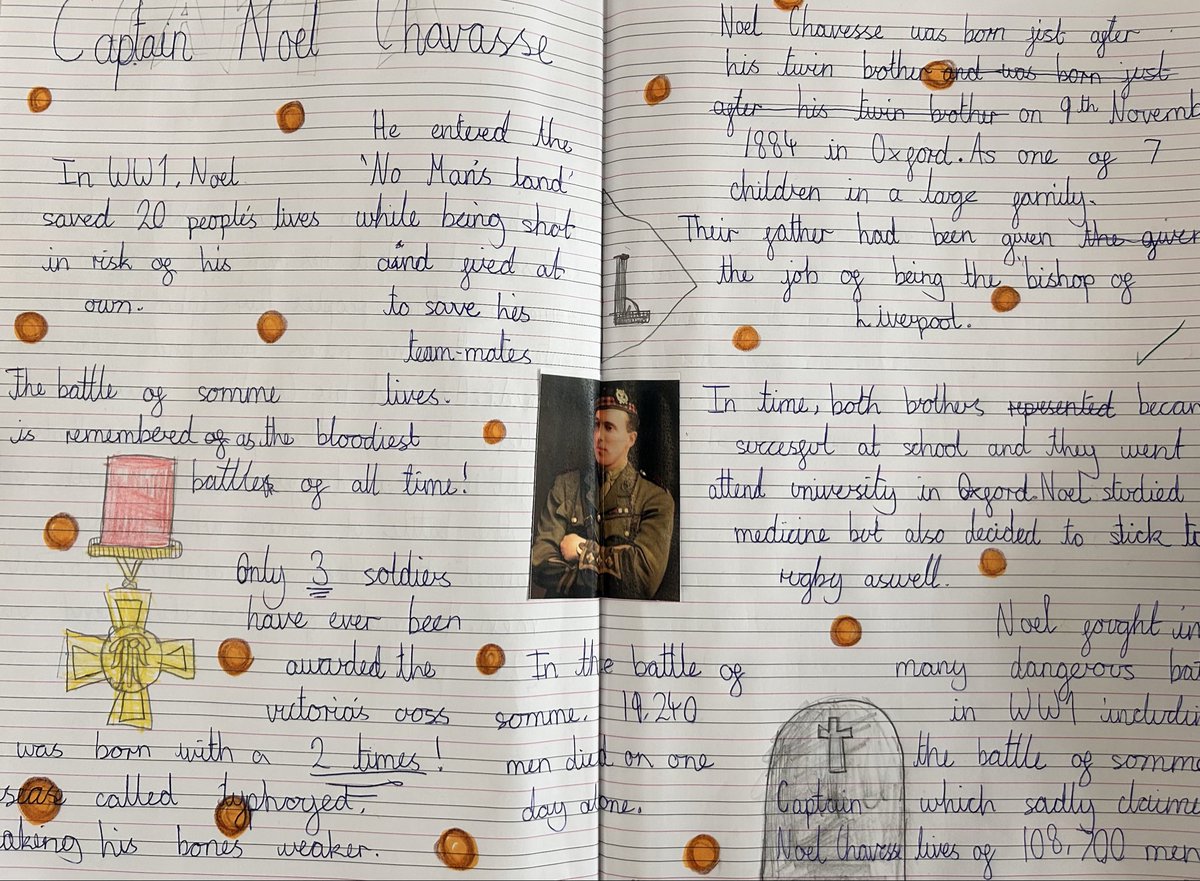 Captain Noel Chavasse
In WW1, Noel
saved 20 people's lives
in risk of his
own.
He entered the
'No Man's land'
while being shot
and fired at
to save his
team-mates
lives.
The battle of somme
is remembered of as the bloodiest
battle of all time!
Only 3 soldiers
have ever been
awarded the
victoria's coss
2 times!
was born with a
called typhoyed,
his bones weaker.
In the battle of
somme. 19,240
men died on one
day alone.
Noel Chavesse was born jist after
his twin brother and was born just
after his twin brother on 9th
1884 in Oxford. As one of 7
children in a large family.
Their father had been given the
the job of being the bishop of
Liverpool.
In time, both brothers represented
succesful at school and they went
attend university in Oxford. Noel studied
medicine but also decided to stick
rugby aswell.
Noel fought in
many dangerous
in WW1
the battle of somme
which sadly
lives of 108,700 men
Captain
Noel Chavesse